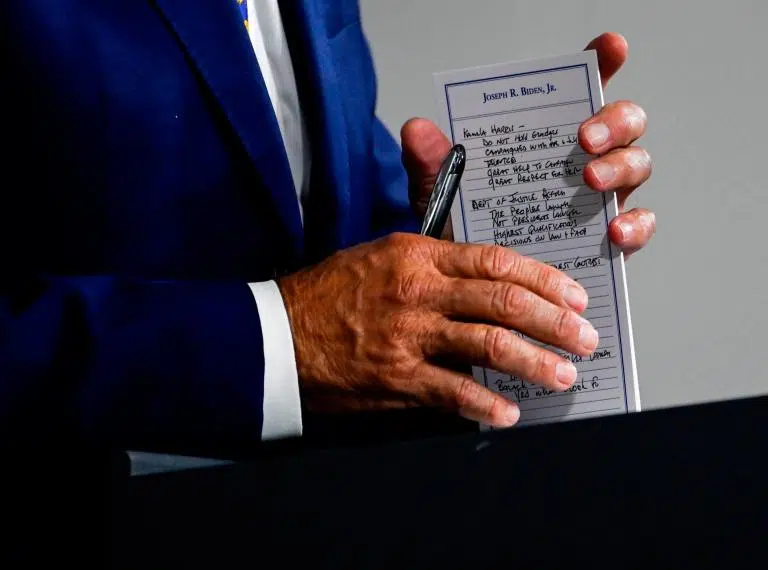 JOSEPH R. BIDEN, JR.
KAMALA HARRIS –
DO NOT HOLD GRUDGES
CAMPAIGNED WITH ME & JILL
TALENTED
GREAT HELP TO CAMPAIGN
GREAT RESPECT FOR HER
DEPT OF JUSTICE
THE PEOPLES LAWYER
NOT PRESIDENTS LAWYER
HIGHEST QUALIFICATIONS
DECISIONS ON LAW & FACT
LAWYER
BARACK –
YES